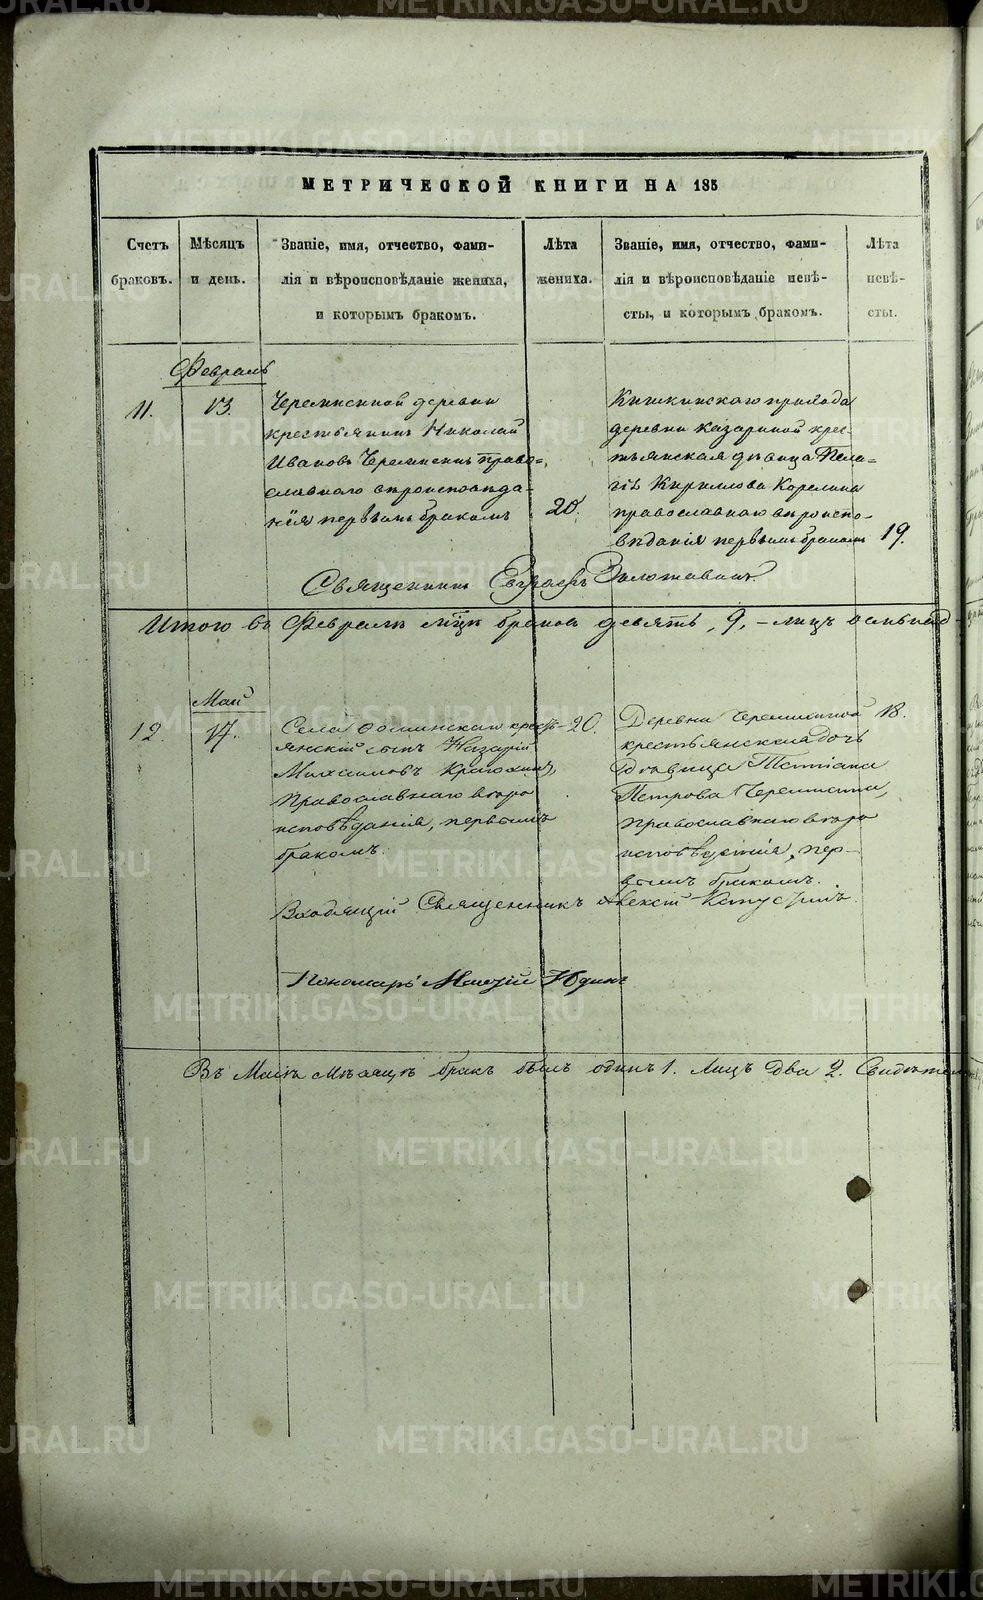 МЕТРИЧЕСКОЙ КНИГИ НА 185
Счетъ браковъ.
Мѣсяцъ и день.
Званіе, имя, отчество, фами-
лія и вѣроисповѣданіе жениха,
и которымъ бракомъ.
Лѣта жениха.
Званіе, имя, отчество, фами-
лія и вѣроисповѣданіе невѣ-
сты, и которымъ бракомъ.
Лѣта невѣ-
сты.
Февраль
11.
13.
Черемисиной деревни
крестьянинъ Николай
Ивановъ Черемисинъ право-
славнаго вѣроисповѣда-
нія первымъ бракомъ
20.
Кишкинскаго прихода
деревни Казариной крес-
тьянская дѣвица Пела-
гія Кириллова Корелина
православнаго вѣроиспо-
вѣданія первымъ бракомъ
19.
Священникъ Евграфъ Золотавинъ
Итого въ Февралѣ м҃цѣ браковъ девять, 9, - лицъ осмьнад-
Май
12
17.
Села крестъ-
янскій сынъ Назарій
Михаиловъ
Православнаго вѣро
исповѣданія, первымъ
бракомъ.
20.
Деревни Черемисиной
крестьянская дочь
дѣвица Татіана
Петрова Черемисина,
Православнаго вѣро
исповѣданія, пер-
вымъ бракомъ.
18.
Священникъ Алексій
Пономарь Юдинъ
Въ Маѣ мѣсяцѣ бракъ былъ одинъ 1. Лицъ два 2.
METRIKI.GASO-URAL.RU